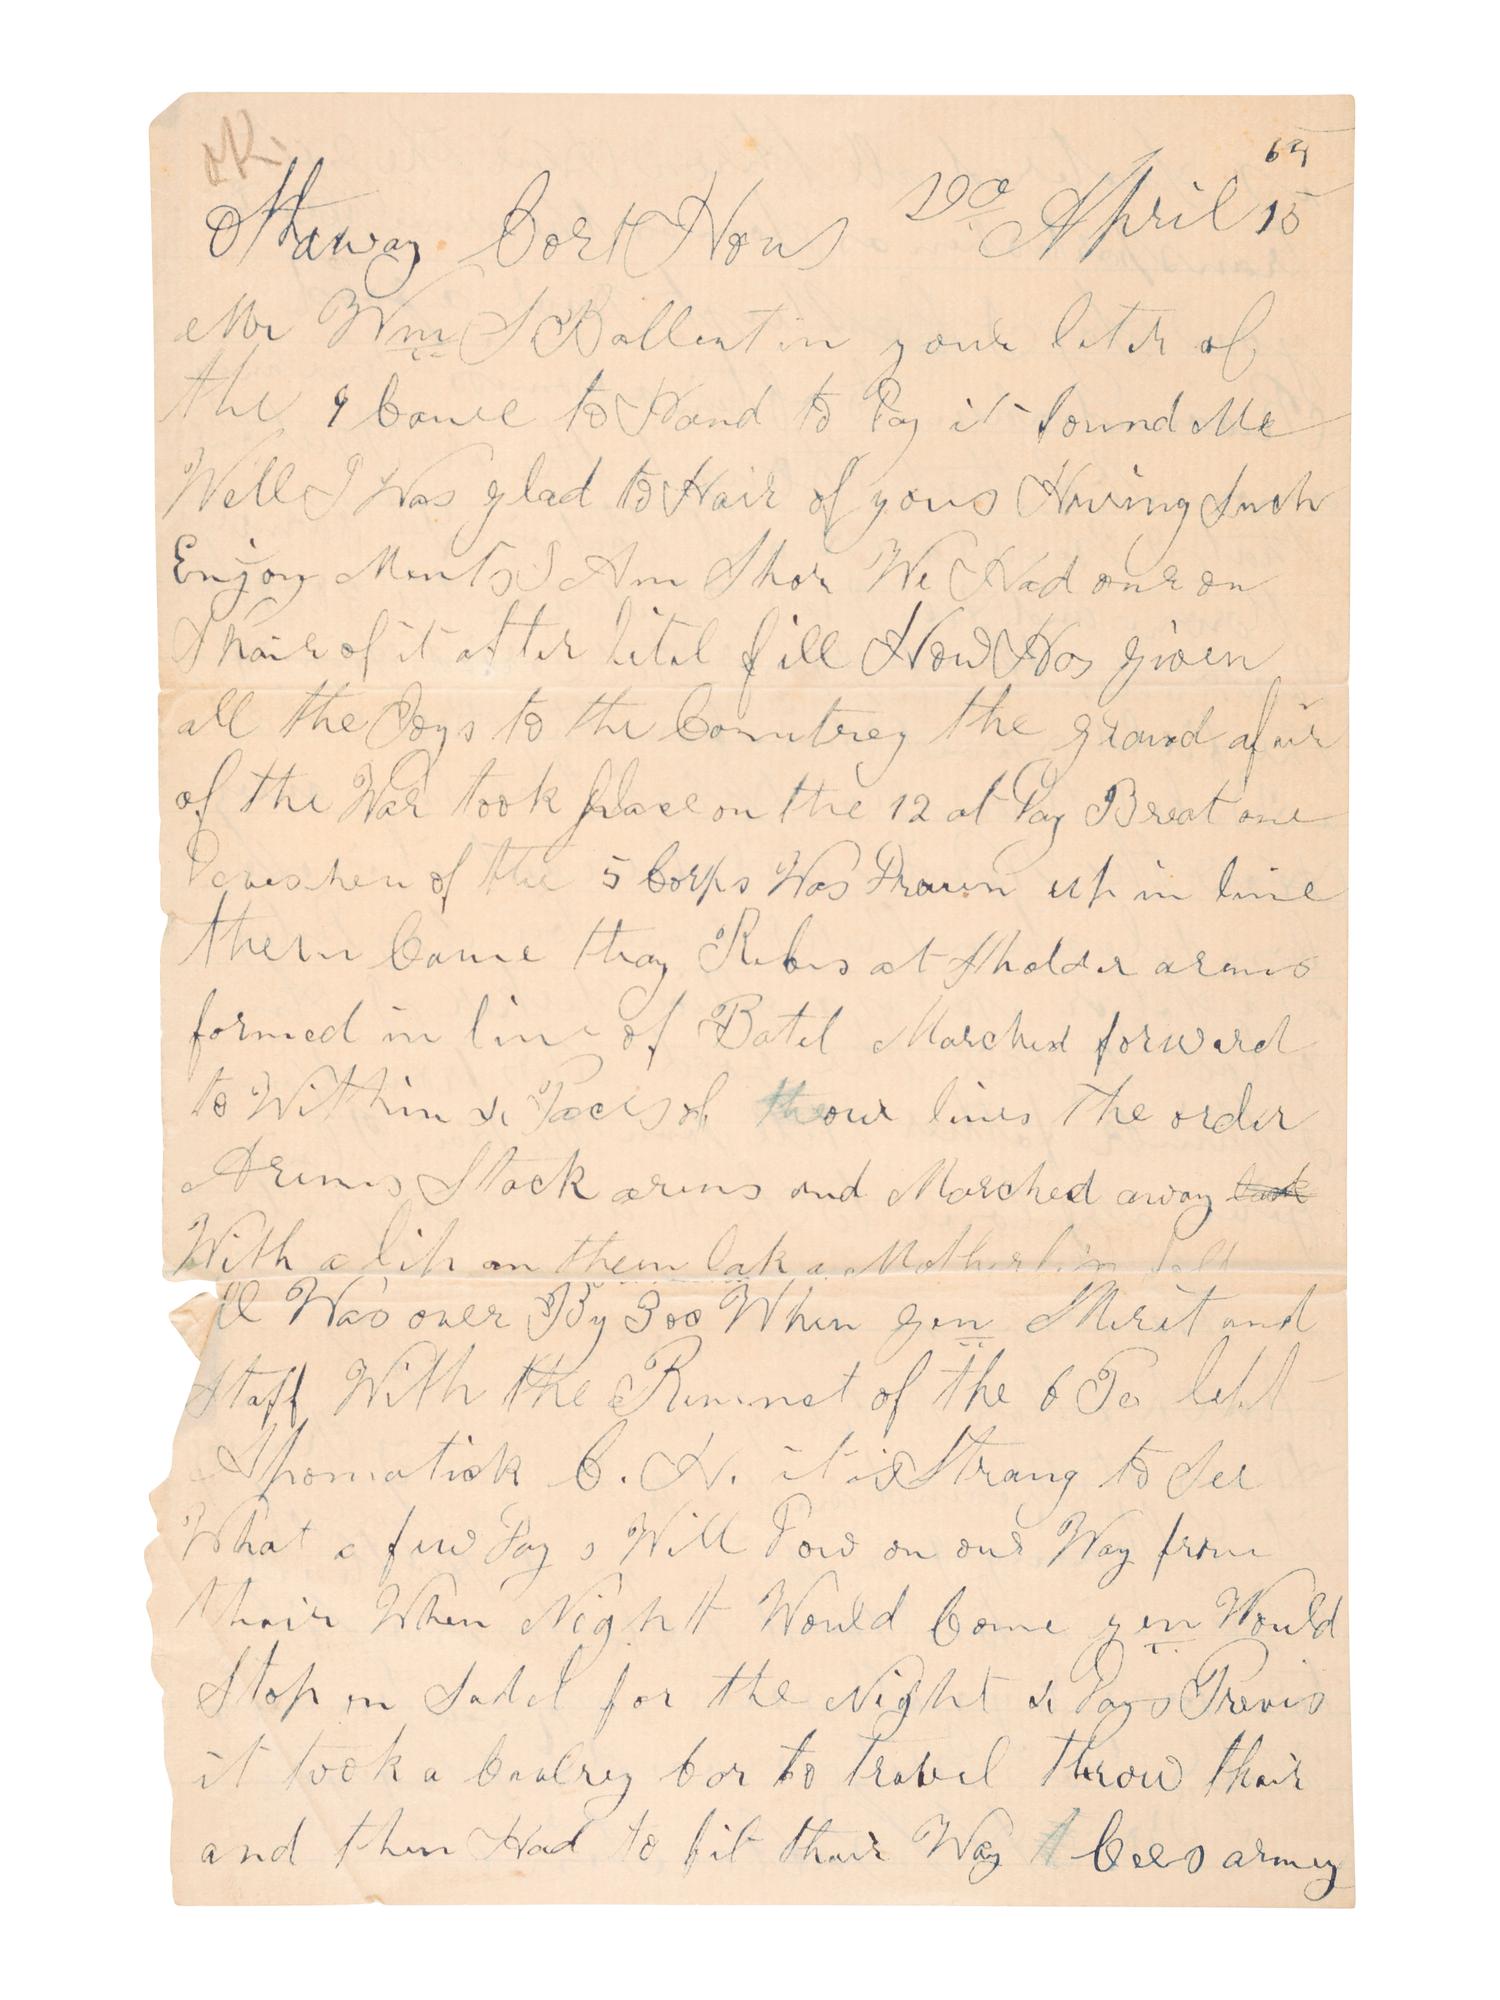 65
Notaway Cort Hous Va April 15
Mr Wm S Ballentin your leter of
the 9 Came to Hand to Day it found Me
Well I Was glad to Hair of yous Having Such
Enjoy Ments I Am Shor We Had our on
Shair of it after litel fill Now Has given
all the Joys to the Comntrey the grand afair
of the War took place on the 12 at Day Breat one
Deveshen of the 5 Corps Was Drawn up in line
then Came thay Rebs at Sholder arms
formed in line of Batel Marched forward
to Within Paces of our lines the order
Arms Stack arms and Marched away
With a lip on them lak a Motherlin
ll Was over By 300 When gen Merit and
Staff With the Rimnet of the 6 Pa left
Apomatick C. H. it is Strang to See
What a few Day s Will Dow on our Way from
thair When Night Would Come gen Would
Stop in Sadel for the Night Days Previs
it took a Cavlrey Cor to travel throw thair
and then Had to fit thair Way Lees armey